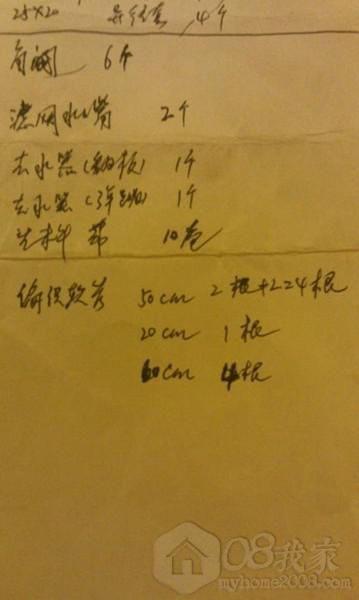 25×20 异径套 4个
角阀 6个
滤网水嘴 2个
去水器(翻板) 1个
去水器 1个
生料带 10卷
编织软管 50cm 2根+2=4根
20cm 1根
60cm 4根
08我家
myhome2008.com